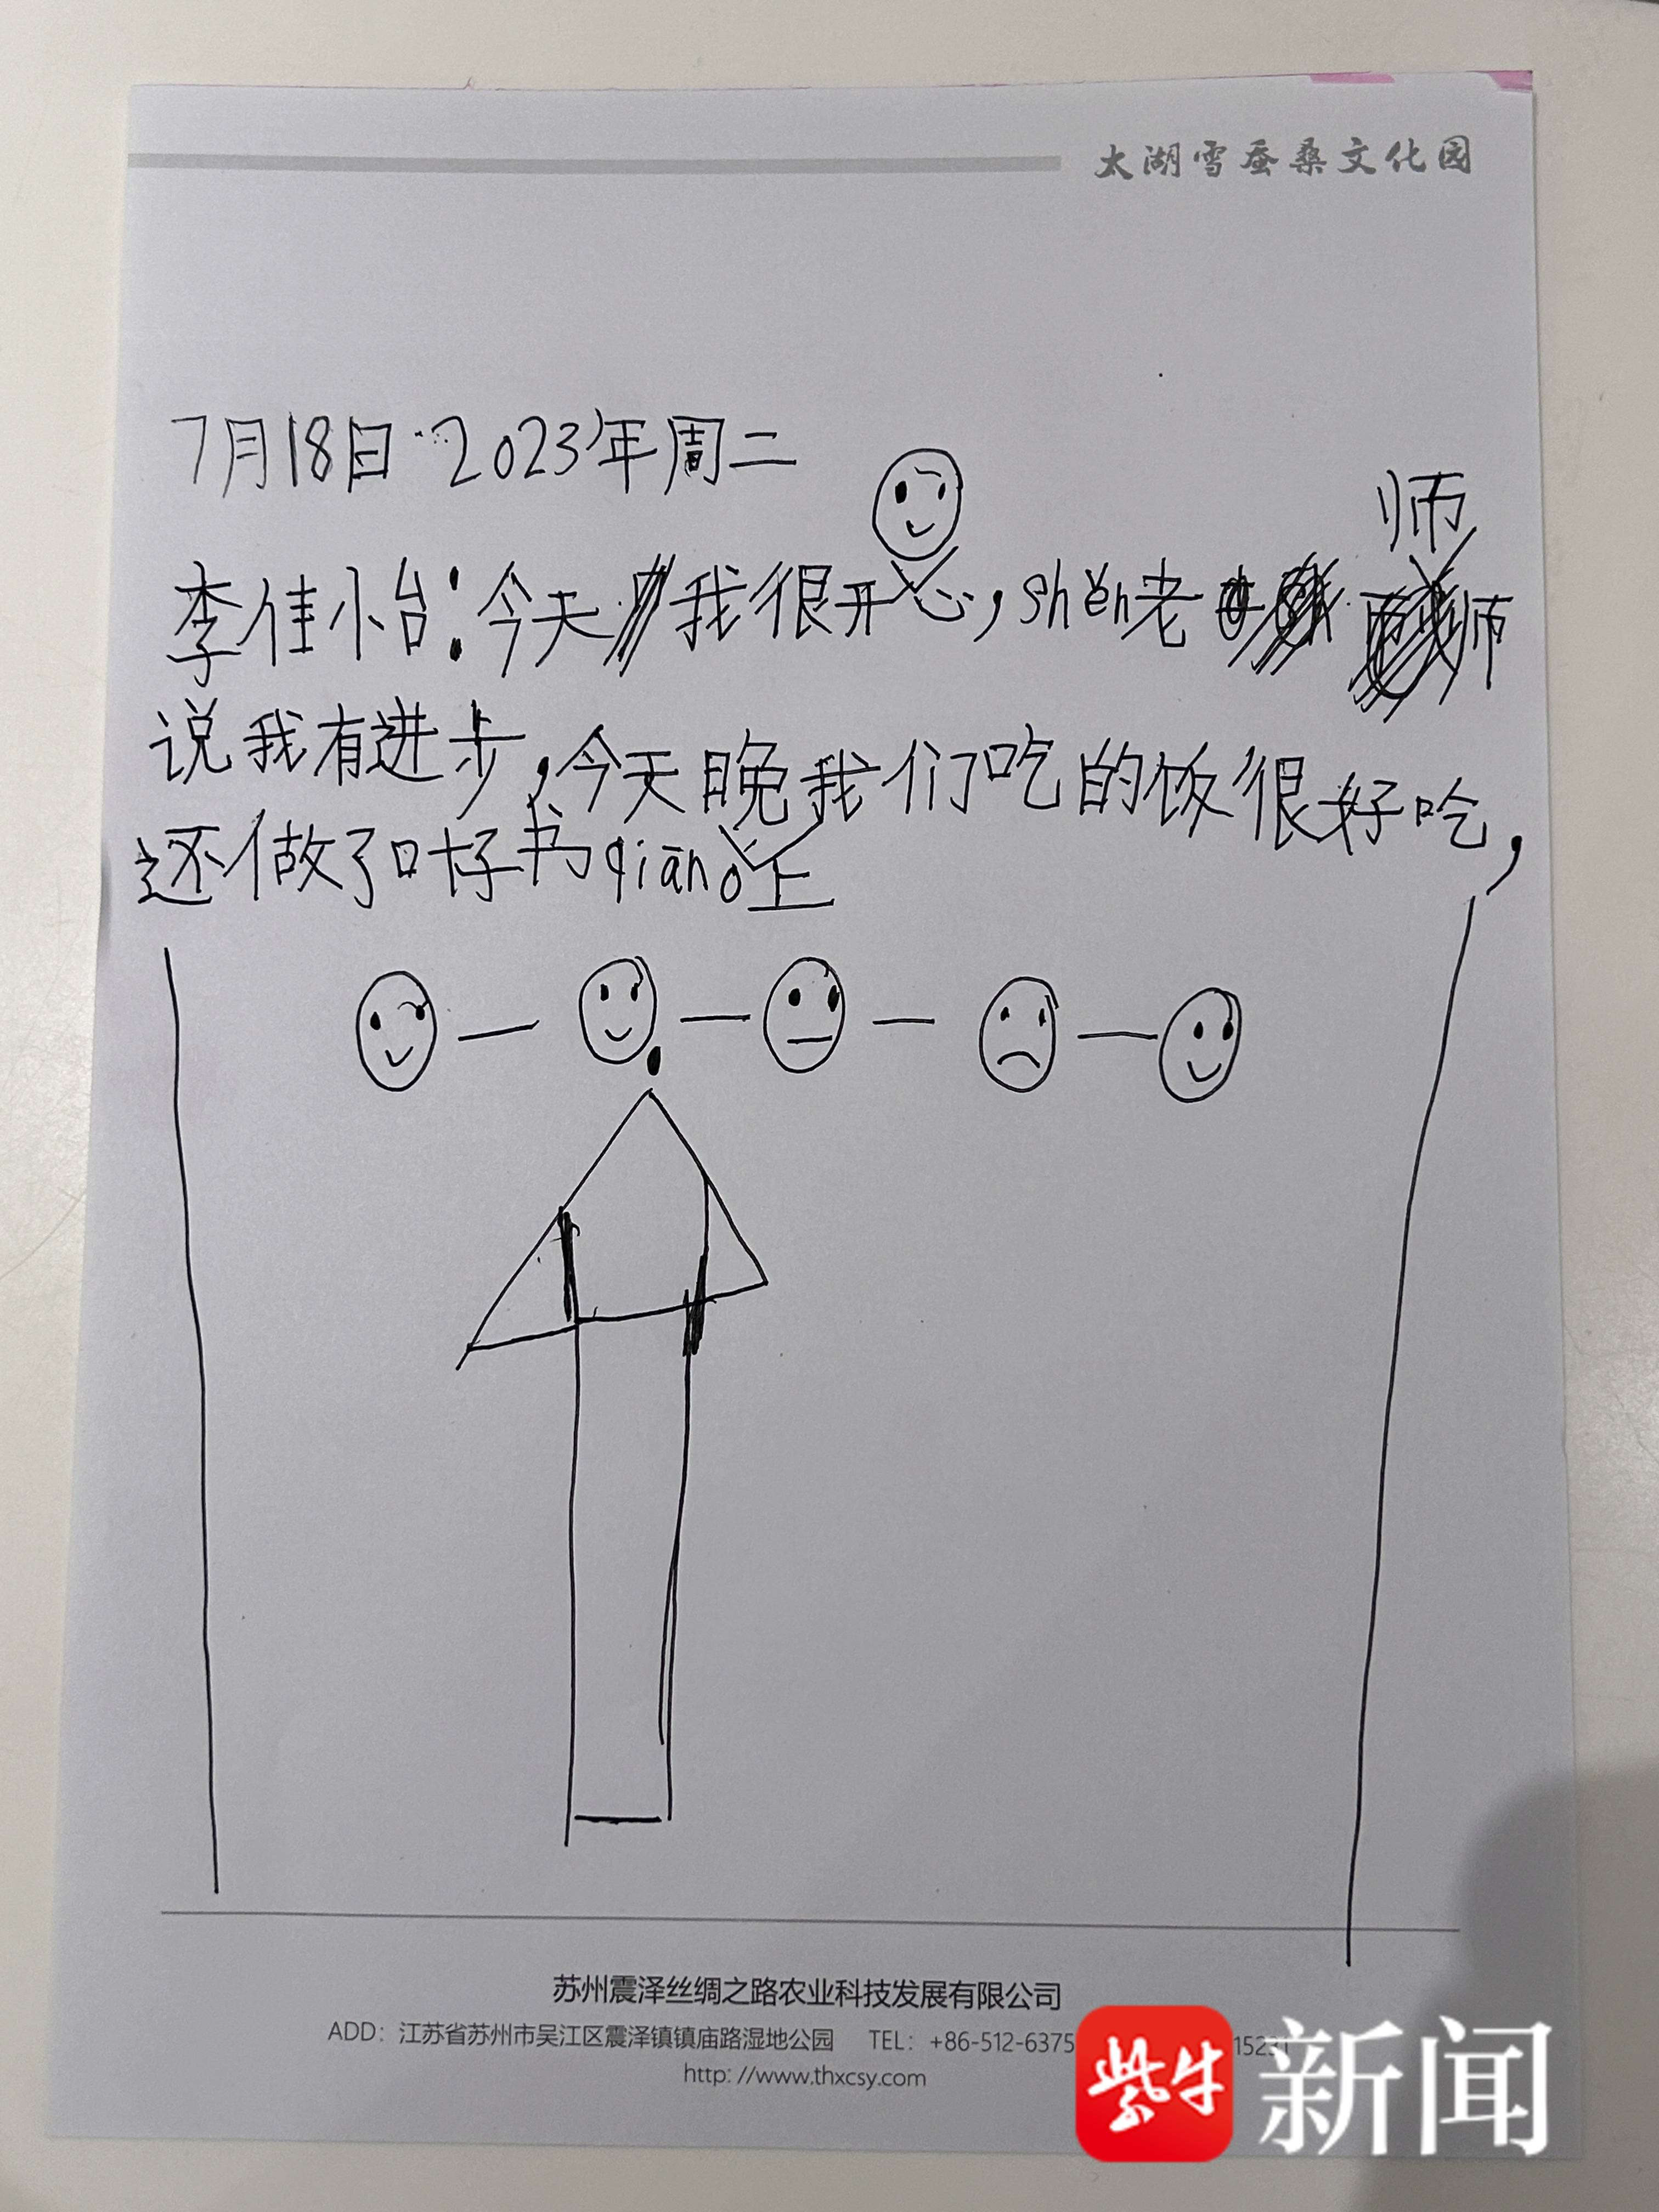 太湖雪蚕桑文化园
7月18日 2023年周二
李佳小台：今天我很开心，shěn老师
说我有进步，今天晚我们吃的饭很好吃，
还做了叶子书qiān。
苏州震泽丝绸之路农业科技发展有限公司
ADD：江苏省苏州市吴江区震泽镇镇庙路湿地公园 TEL：+86-512-6375
http://www.thxcsy.com
紫牛新闻